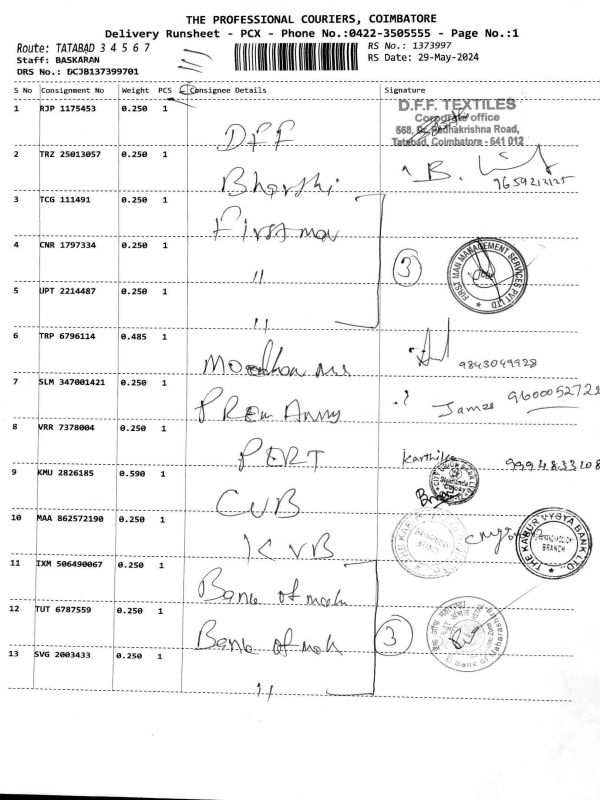 THE PROFESSIONAL COURIERS, COIMBATORE
Delivery Runsheet - PCX - Phone No.:0422-3505555 - Page No.:1
Route: TATABAD 3 4 5 6 7
Staff: BASKARAN
DRS No.: DCJB137399701
RS No.: 1373997
RS Date: 29-May-2024
S No Consignment No Weight PCS Consignee Details Signature
1 RJP 1175453 0.250 1
DFF
D.F.F. TEXTILES
Corporate office
568, Radhakrishna Road,
Tatabad, Coimbatore - 641 012
2 TRZ 25013057 0.250 1
Bharthi
B.
9659212125
3 TCG 111491 0.250 1
First man
4 CNR 1797334 0.250 1
"
3
FIRST MAN MANAGEMENT SERVICES PVT LTD
5 UPT 2214487 0.250 1
"
6 TRP 6796114 0.485 1
9843049928
7 SLM 347001421 0.250 1
PREM
James 960005272
8 VRR 7378004 0.250 1
PERT
Karthika 9994833208
9 KMU 2826185 0.590 1
CUB
10 MAA 862572190 0.250 1
KVB
THE KARUR VYSYA BANK LTD.
BRANCH
11 IXM 506490067 0.250 1
Bank of mah
12 TUT 6787559 0.250 1
Bank of mah
3
Bank of Maharashtra
13 SVG 2003433 0.250 1
"